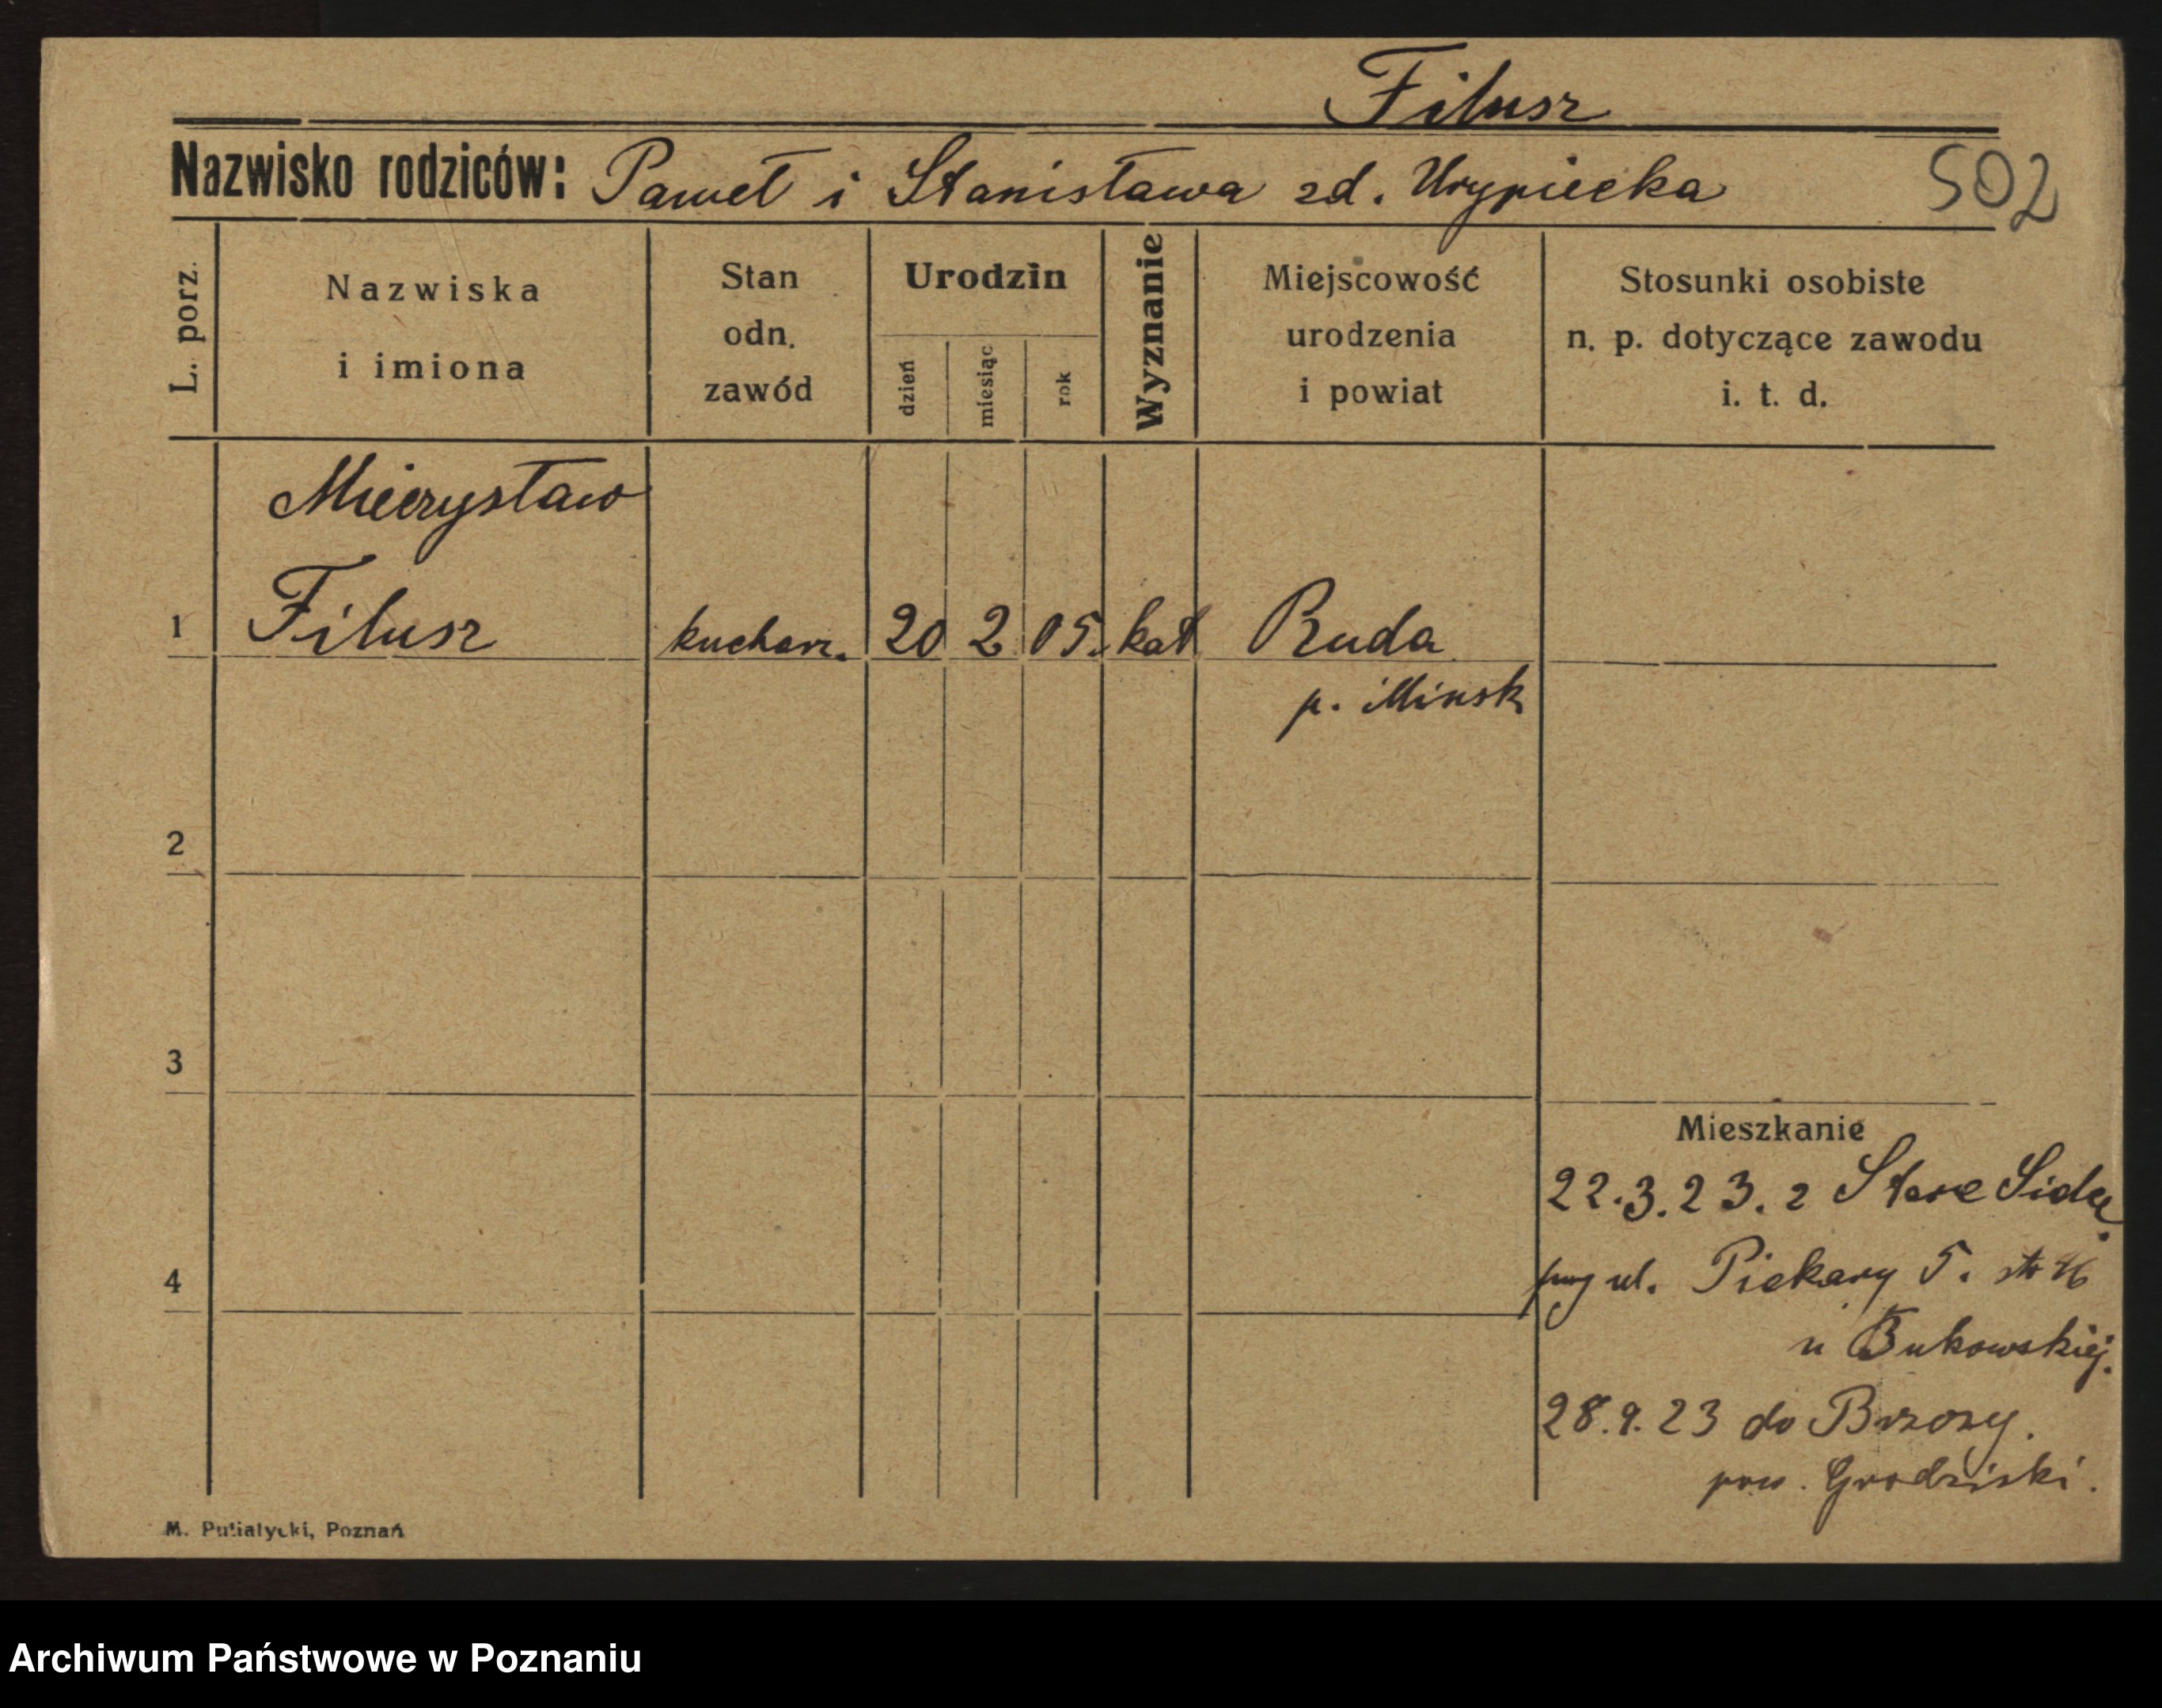 Filusz
Nazwisko rodziców: Paweł i Stanisława zd. Urypiecka
502
L. porz.
Nazwiska
i imiona
Stan
odn.
zawód
Urodzin
dzień
miesiąc
rok
Wyznanie
Miejscowość
urodzenia
i powiat
Stosunki osobiste
n. p. dotyczące zawodu
i. t. d.
Mieczysław
1 Filusz kucharz. 20 2 05. kat Ruda
p. Minsk
2
3
4
Mieszkanie
22.3.23. z Stare
ul. Piekary 5.
u Bukowskiej.
28.9.23 do Brzozy.
pow. Grodziski.
M. Putiatycki, Poznań
Archiwum Państwowe w Poznaniu